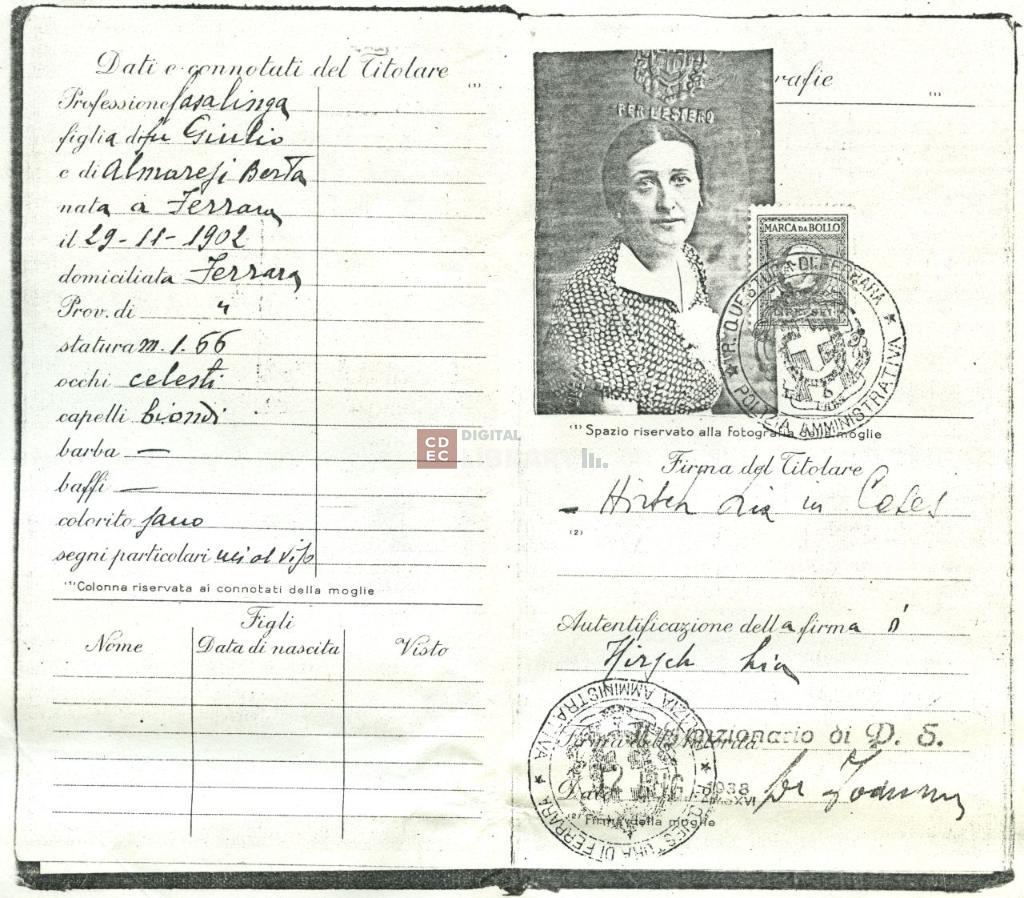 Dati e connotati del Titolare
(1)
Professione Casalinga
figlia di fu Giulio
e di Almaresi Berta
nata a Ferrara
il 29-11-1902
domiciliata Ferrara
Prov. di "
statura m. 1.66
occhi celesti
capelli biondi
barba —
baffi —
colorito sano
segni particolari nei al viso
(1) Colonna riservata ai connotati della moglie
Figli
Nome Data di nascita Visto
rafie
(1)
PER L'ESTERO
MARCA DA BOLLO
LIRE SEI
★ R. QUESTURA DI FERRARA ★ POLIZIA AMMINISTRATIVA
(1) Spazio riservato alla fotografia della moglie
CD EC DIGITAL LIBRARY
Firma del Titolare
- Hirsch Lia in Cases
(2)
Autentificazione della firma di
Hirsch Lia
Il Funzionario di P. S.
Firma dell'Autorità
1938
XVI
(2) Firma della moglie
R. QUESTURA DI FERRARA ★ POLIZIA AMMINISTRATIVA ★